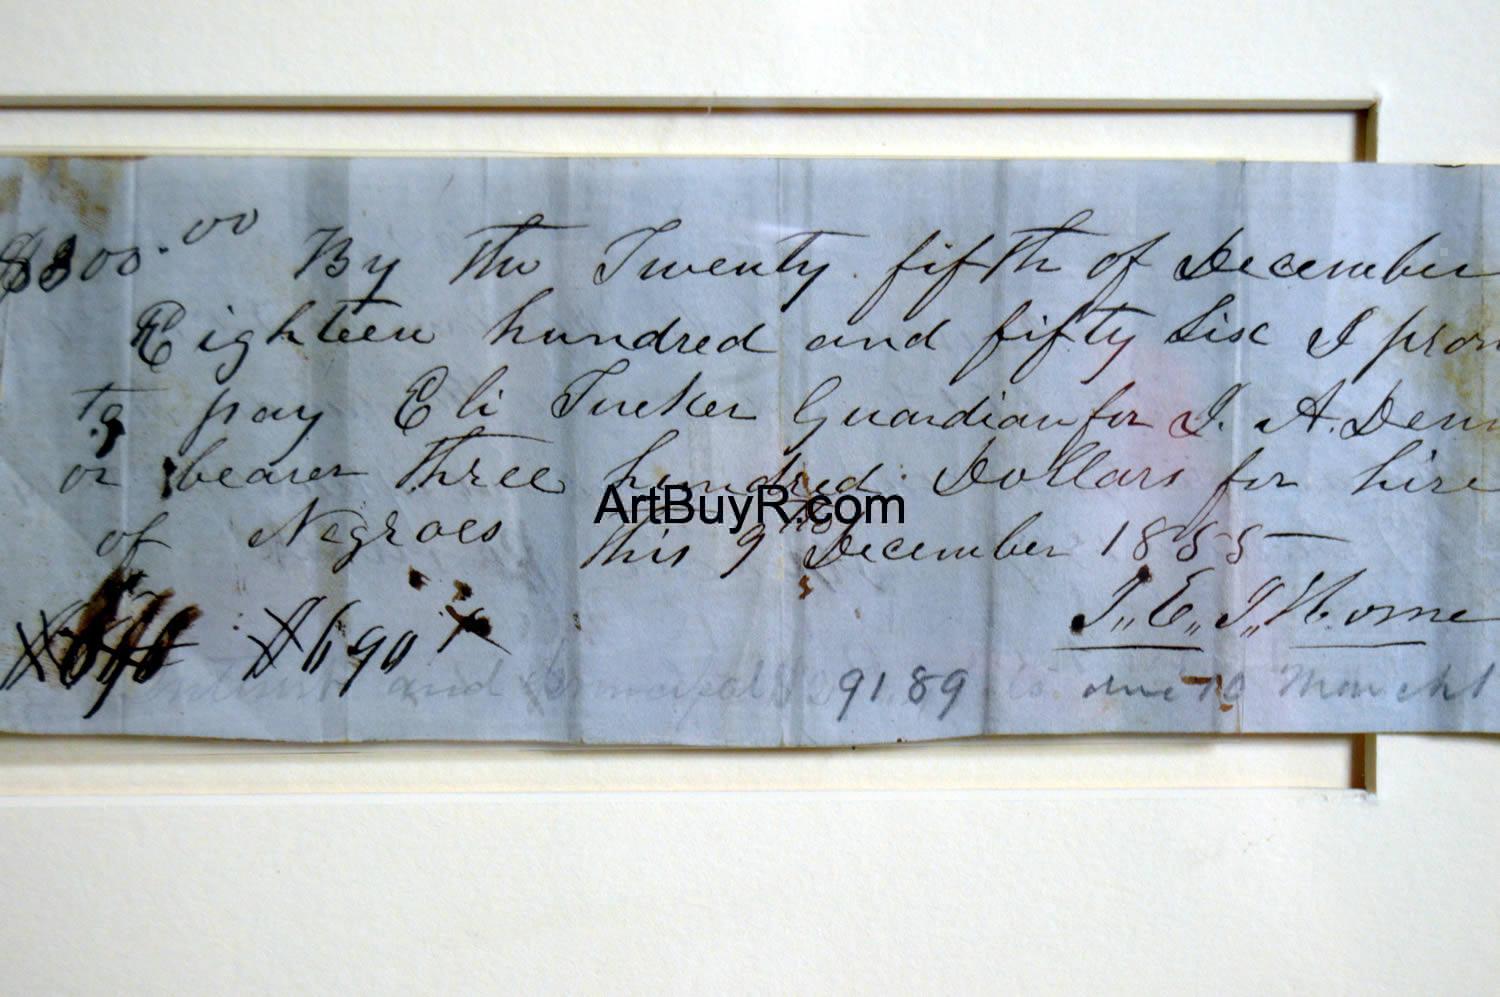 $300.00 By the Twenty fifth of December
Eighteen hundred and fifty Six I prom
to pay Eli Tucker Guardian for J. A. Denn
or bearer three hundred Dollars for hire
of Negroes this 9th December 1855
J,, E,, J,, Horne
$690
and 291.89 due 10 March 1
ArtBuyR.com